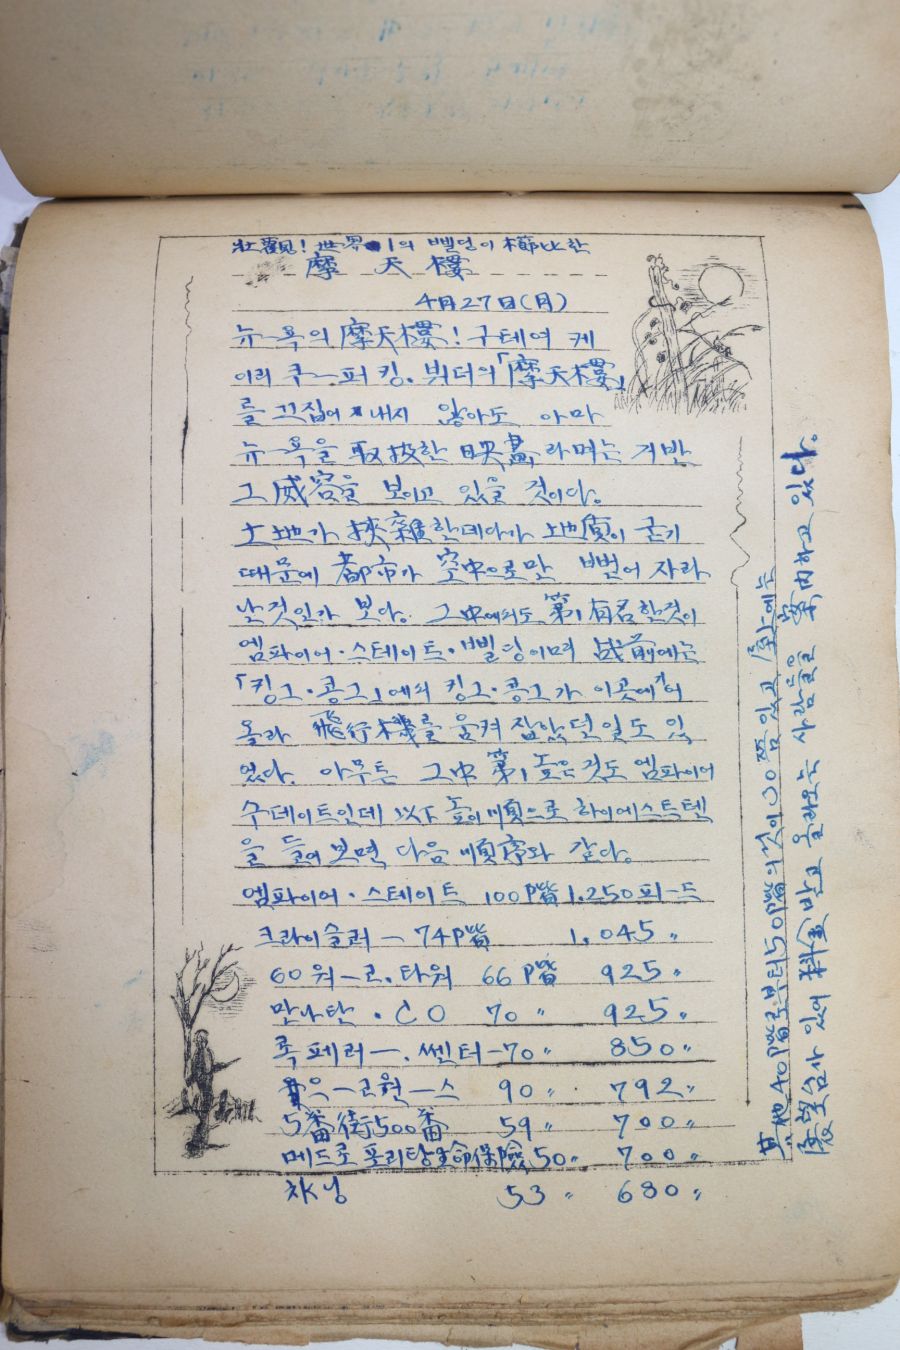 壯觀! 世界 1의 삘딩이 櫛比한
摩天樓
4月27日(月)
뉴-욕의 摩天樓! 구테여 케
이리 쿠-퍼 킹.뷔더의「摩天樓」
를 끄집어 내지 않아도 아마
뉴-욕을 取扱한 映畵라며는 거반
그 威容을 보이고 있을 것이다.
土地가 挾雜한데다가 地質이 굳기
때문에 都市가 空中으로만 뻗어 자라
난것인가 보다. 그中에서도 第1 有名한것이
엠파이어·스테이트·삘딩이며 战前에는
「킹그·콩그」에의 킹그·콩그가 이곳에
올라 飛行機를 움켜 잡았던일도 있
었다. 아무튼 그中 第1 높은것도 엠파이어
수데이트인데 以下 높이順으로 하이에스트텐
을 들어보면 다음 順序와 같다.
엠파이어·스테이트 100P階 1.250피-드
크라이슬러- 74P階 1.045〃
60워-르.타워 66P階 925〃
만나탄·CO 70〃 925〃
록페러-.쎈터-70〃 850〃
90〃 792〃
5番街500番 59〃 700〃
메드로포리탄生命保險 50〃 700〃
53〃 680〃
其他40P階로부터50P階의것이 00쯤있고 屋上에는
展望台가 있어 料金받고 올라오는 사람들을 案內하고 있다.